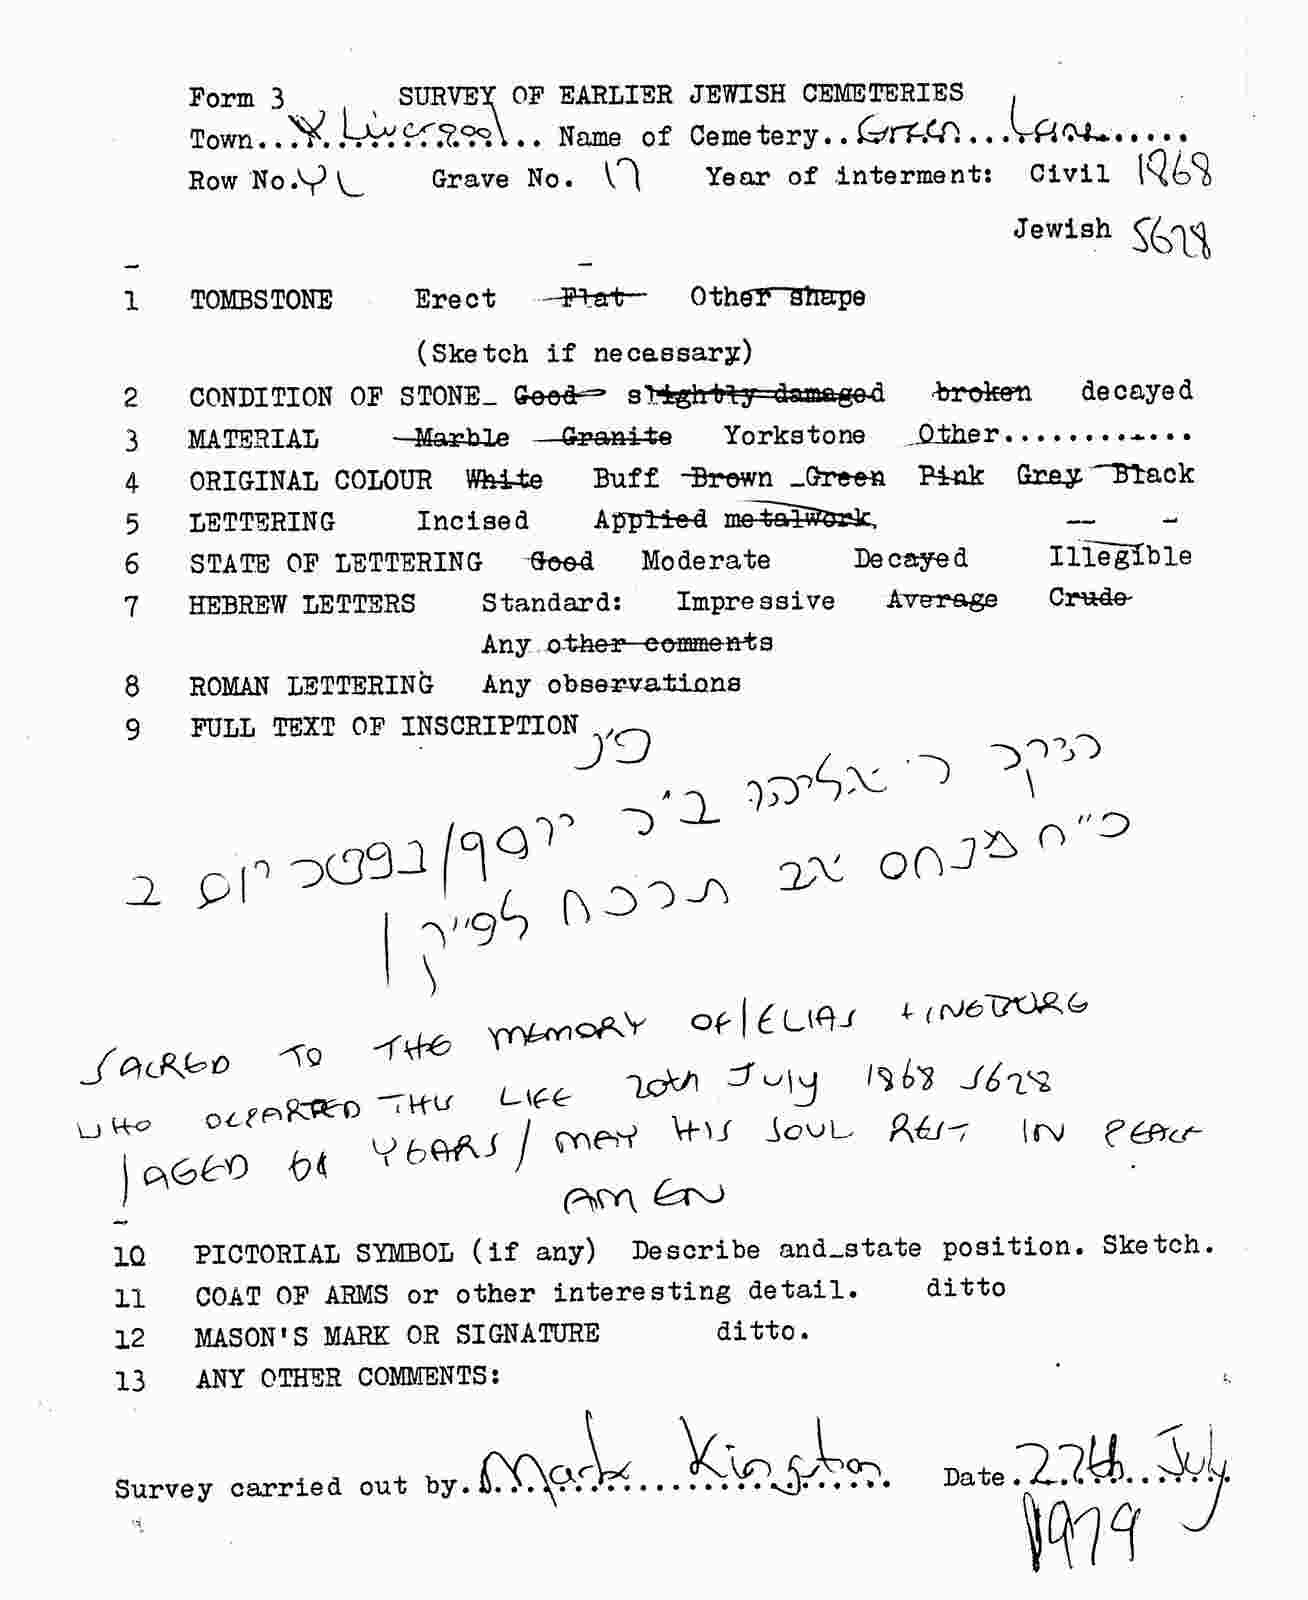 Form 3 SURVEY OF EARLIER JEWISH CEMETERIES
Town... Liverpool... Name of Cemetery.. Green... Lane.....
Row No. YL Grave No. 17 Year of interment: Civil 1868
Jewish 5628
1 TOMBSTONE Erect Flat Other shape
(Sketch if necessary)
2 CONDITION OF STONE_ Good slightly damaged broken decayed
3 MATERIAL Marble Granite Yorkstone Other............
4 ORIGINAL COLOUR White Buff Brown _Green Pink Grey Black
5 LETTERING Incised Applied metalwork,
6 STATE OF LETTERING Good Moderate Decayed Illegible
7 HEBREW LETTERS Standard: Impressive Average Crude
Any other comments
8 ROMAN LETTERING Any observations
9 FULL TEXT OF INSCRIPTION
פ״נ
היקר ר׳ אליהו ב״ר יוסף/נפטר יום ב
כ״ח מנחם אב תרכח לפ״ק|
SACRED TO THE MEMORY OF/ELIAS
WHO DEPARTED THIS LIFE 20th July 1868 5628
/AGED YEARS/MAY HIS SOUL REST IN PEACE
AMEN
10 PICTORIAL SYMBOL (if any) Describe and_state position. Sketch.
11 COAT OF ARMS or other interesting detail. ditto
12 MASON'S MARK OR SIGNATURE ditto.
13 ANY OTHER COMMENTS:
Survey carried out by. Mark Kingston Date. 27th July
1979